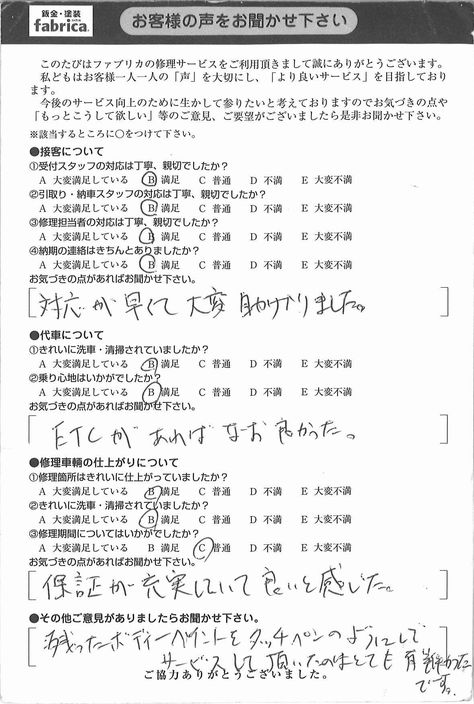 鈑金・塗装
fabrica.
お客様の声をお聞かせ下さい
このたびはファブリカの修理サービスをご利用頂きまして誠にありがとうございます。
私どもはお客様一人一人の「声」を大切にし、「より良いサービス」を目指しており
ます。
今後のサービス向上のために生かして参りたいと考えておりますのでお気づきの点や
「もっとこうして欲しい」等のご意見、ご要望がございましたら是非お聞かせ下さい。
※該当するところに○をつけて下さい。
●接客について
①受付スタッフの対応は丁寧、親切でしたか？
A 大変満足している B 満足 C 普通 D 不満 E 大変不満
②引取り・納車スタッフの対応は丁寧、親切でしたか？
A 大変満足している B 満足 C 普通 D 不満 E 大変不満
③修理担当者の対応は丁寧、親切でしたか？
A 大変満足している B 満足 C 普通 D 不満 E 大変不満
④納期の連絡はきちんとありましたか？
A 大変満足している B 満足 C 普通 D 不満 E 大変不満
お気づきの点があればお聞かせ下さい。
対応が早くて大変助かりました。
●代車について
①きれいに洗車・清掃されていましたか？
A 大変満足している B 満足 C 普通 D 不満 E 大変不満
②乗り心地はいかがでしたか？
A 大変満足している B 満足 C 普通 D 不満 E 大変不満
お気づきの点があればお聞かせ下さい。
ETCがあればなお良かった。
●修理車輌の仕上がりについて
①修理箇所はきれいに仕上がっていましたか？
A 大変満足している B 満足 C 普通 D 不満 E 大変不満
②きれいに洗車・清掃されていましたか？
A 大変満足している B 満足 C 普通 D 不満 E 大変不満
③修理期間についてはいかがでしたか？
A 大変満足している B 満足 C 普通 D 不満 E 大変不満
お気づきの点があればお聞かせ下さい。
保証が充実していて良いと感じた。
●その他ご意見がありましたらお聞かせ下さい。
残ったボディーペイントをタッチペンのようにして
サービスして頂いたのはとても有難かった
です。
ご協力ありがとうございました。